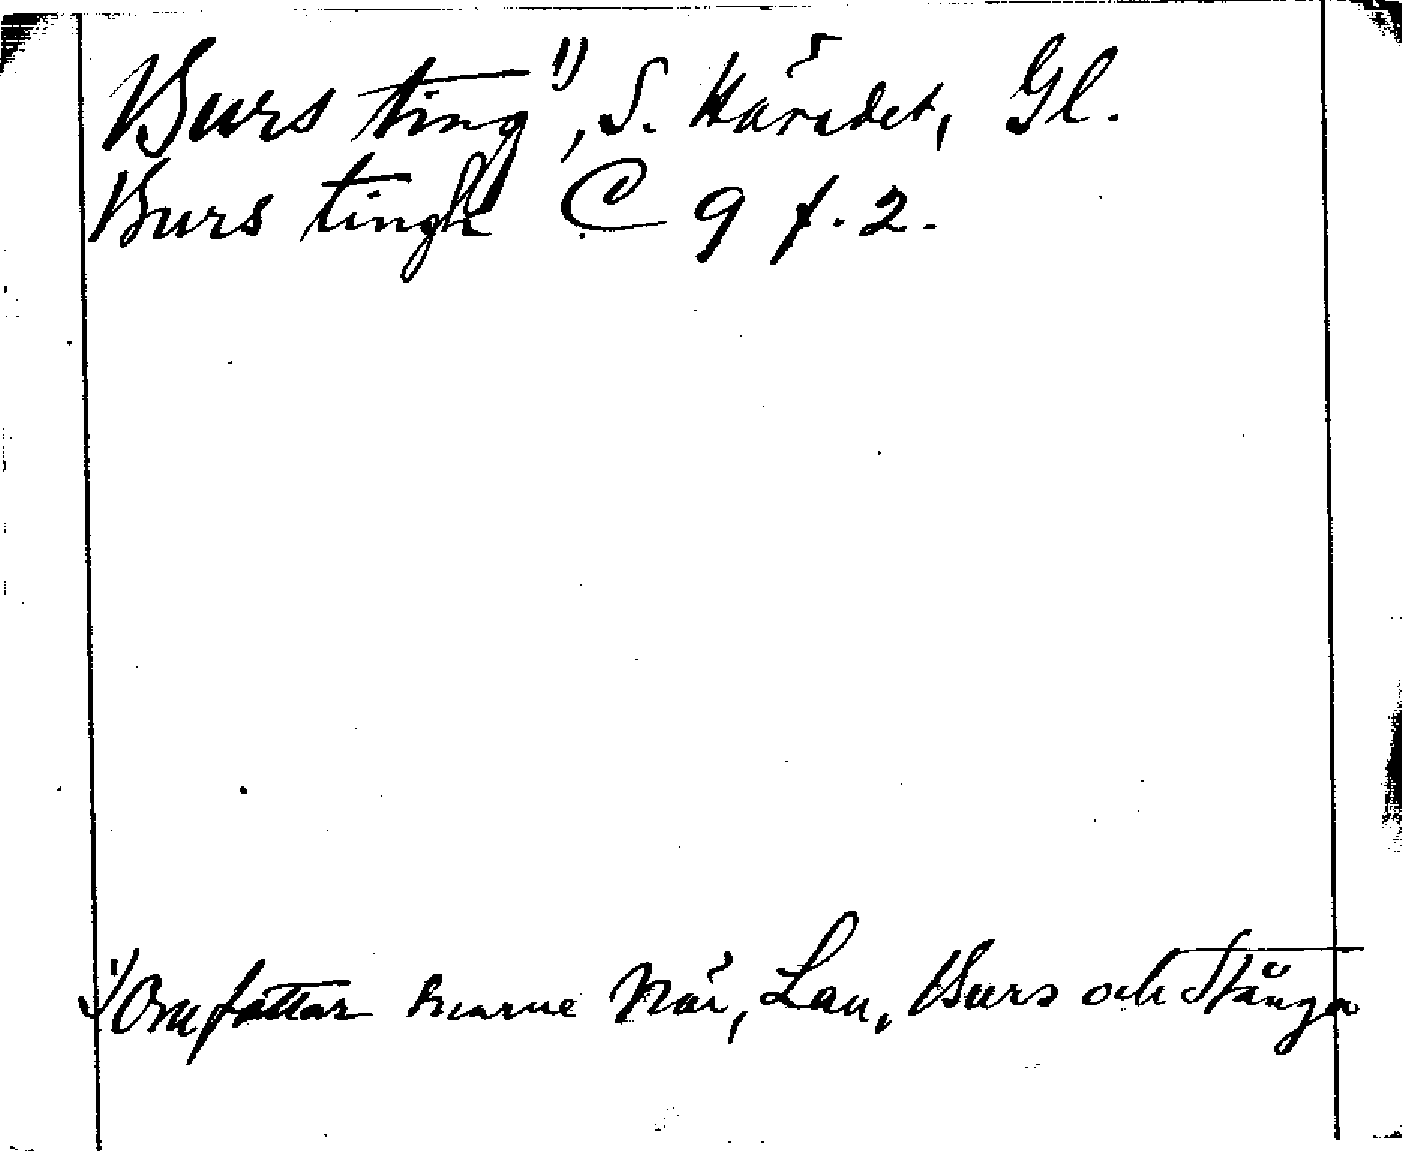 Burs ting¹⁾, S. Häradet, Gl.
Burs tingh C 9 f. 2.
¹⁾ Omfattar snarne När, Lau, Burs och Stånga